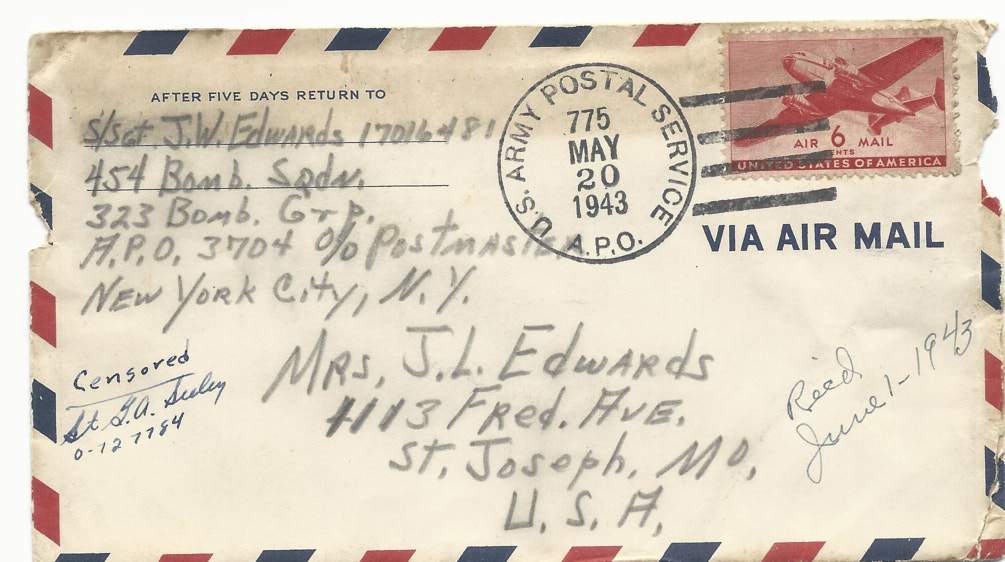 AFTER FIVE DAYS RETURN TO
S/Sgt J.W. Edwards 17016481
454 Bomb. Sqdn.
323 Bomb. Grp.
A.P.O. 3704 c/o Postmaster
New York City, N.Y.
U.S. ARMY POSTAL SERVICE
775
MAY
20
1943
A.P.O.
AIR 6 MAIL
CENTS
UNITED STATES OF AMERICA
VIA AIR MAIL
Mrs. J.L. Edwards
1113 Fred. Ave.
St. Joseph, Mo.
U.S.A.
Censored
Lt G.A.
Rec'd
June 1-1943